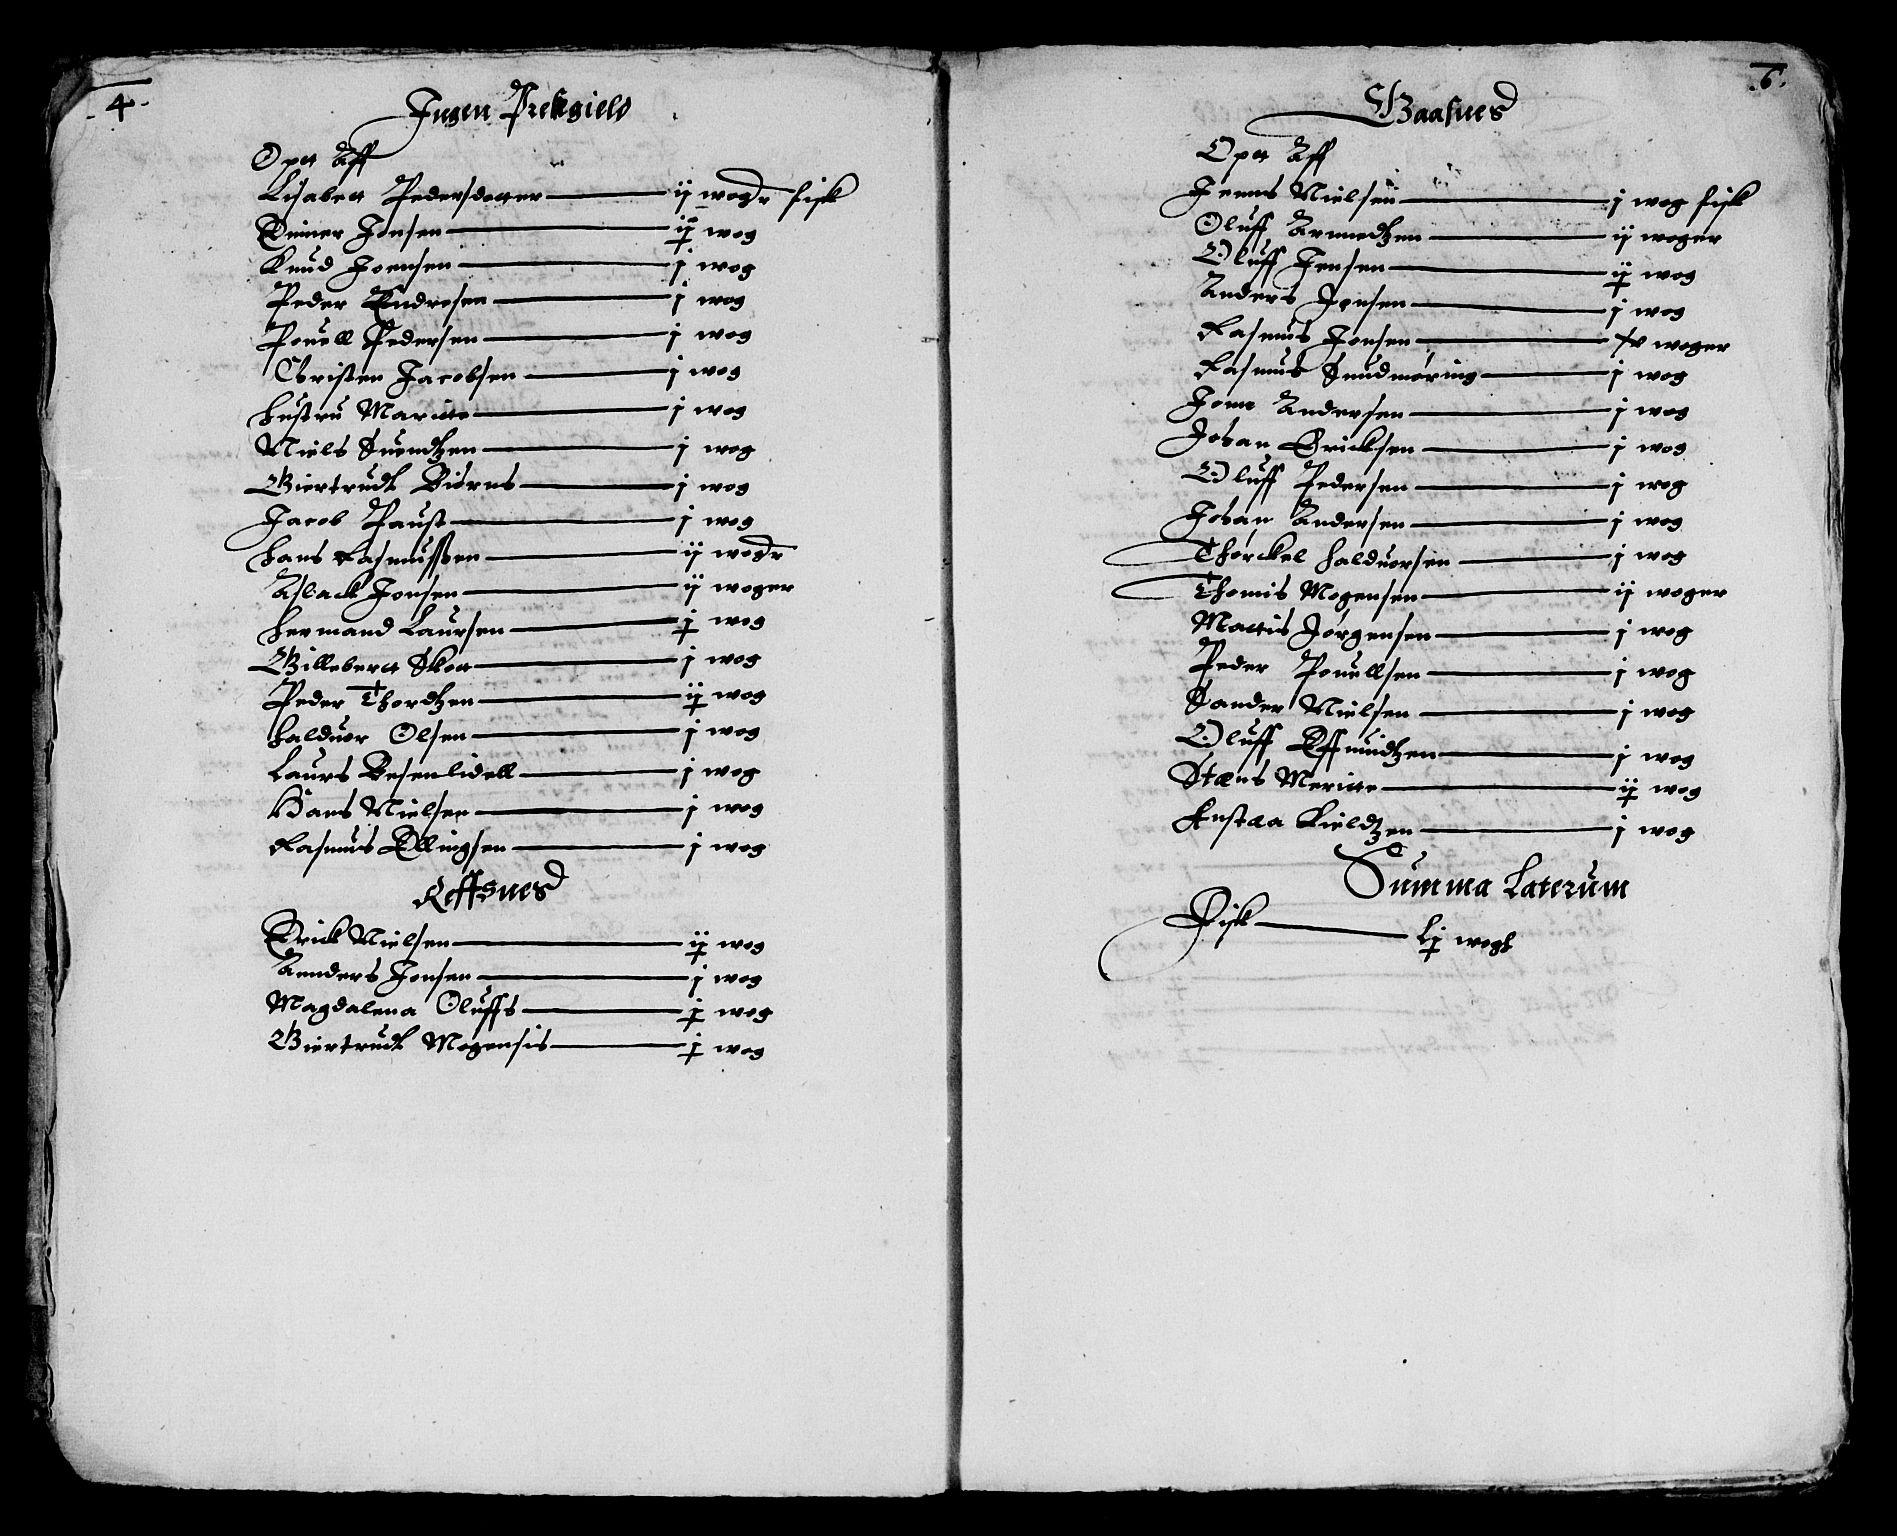 4.
Ingen Prestegield
Opet Aff
Lisabett Pedersdotter ij woger fisk
Einer Jonsen ij wog
Knud Joensen j wog
Peder Endresen j wog
Pouell Pedersen j wog
Christen Jacobsen j wog
Hustru Maritte j wog
Niels Suendtzen j wog
Giertrudt Biörns j wog
Jacob Paust j wog
Hans Rasmussen ij woger
Aslack Jonsen ij woger
Hermand Laursen j wog
Gillebert Skot j wog
Peder Thordtzen ij wog
Halduor Olsen j wog
Laurs Besenlidell j wog
Hans Nielsen j wog
Rasmus Ellingsen j wog
Reffsnes
Erick Nielsen ij wog
Annders Jonsen j wog
Magdalena Oluffs j wog
Giertrudt Mogensis j wog
6.
Baasnes
Opet Aff
Jenns Nielsen j wog fisk
Oluff Arnnedtzen ij woger
Oluff Jensen ij wog
Anders Jensen j wog
Rasmus Jonsen woger
Rasmus Sundmöring j wog
Jonn Andersen j wog
Johan Ericksen j wog
Oluff Pedersen j wog
Johan Andersen j wog
Thorckel Halduorsen j wog
Thomis Mogensen ij woger
Mattis Jörgensen j wog
Peder Pouellsen j wog
Sander Nielsen j wog
Oluff Effuindtzen j wog
Stæns Meritte ij wog
Anstæa Kieldtzen j wog
Summa Laterum
Fisk Lj wogh